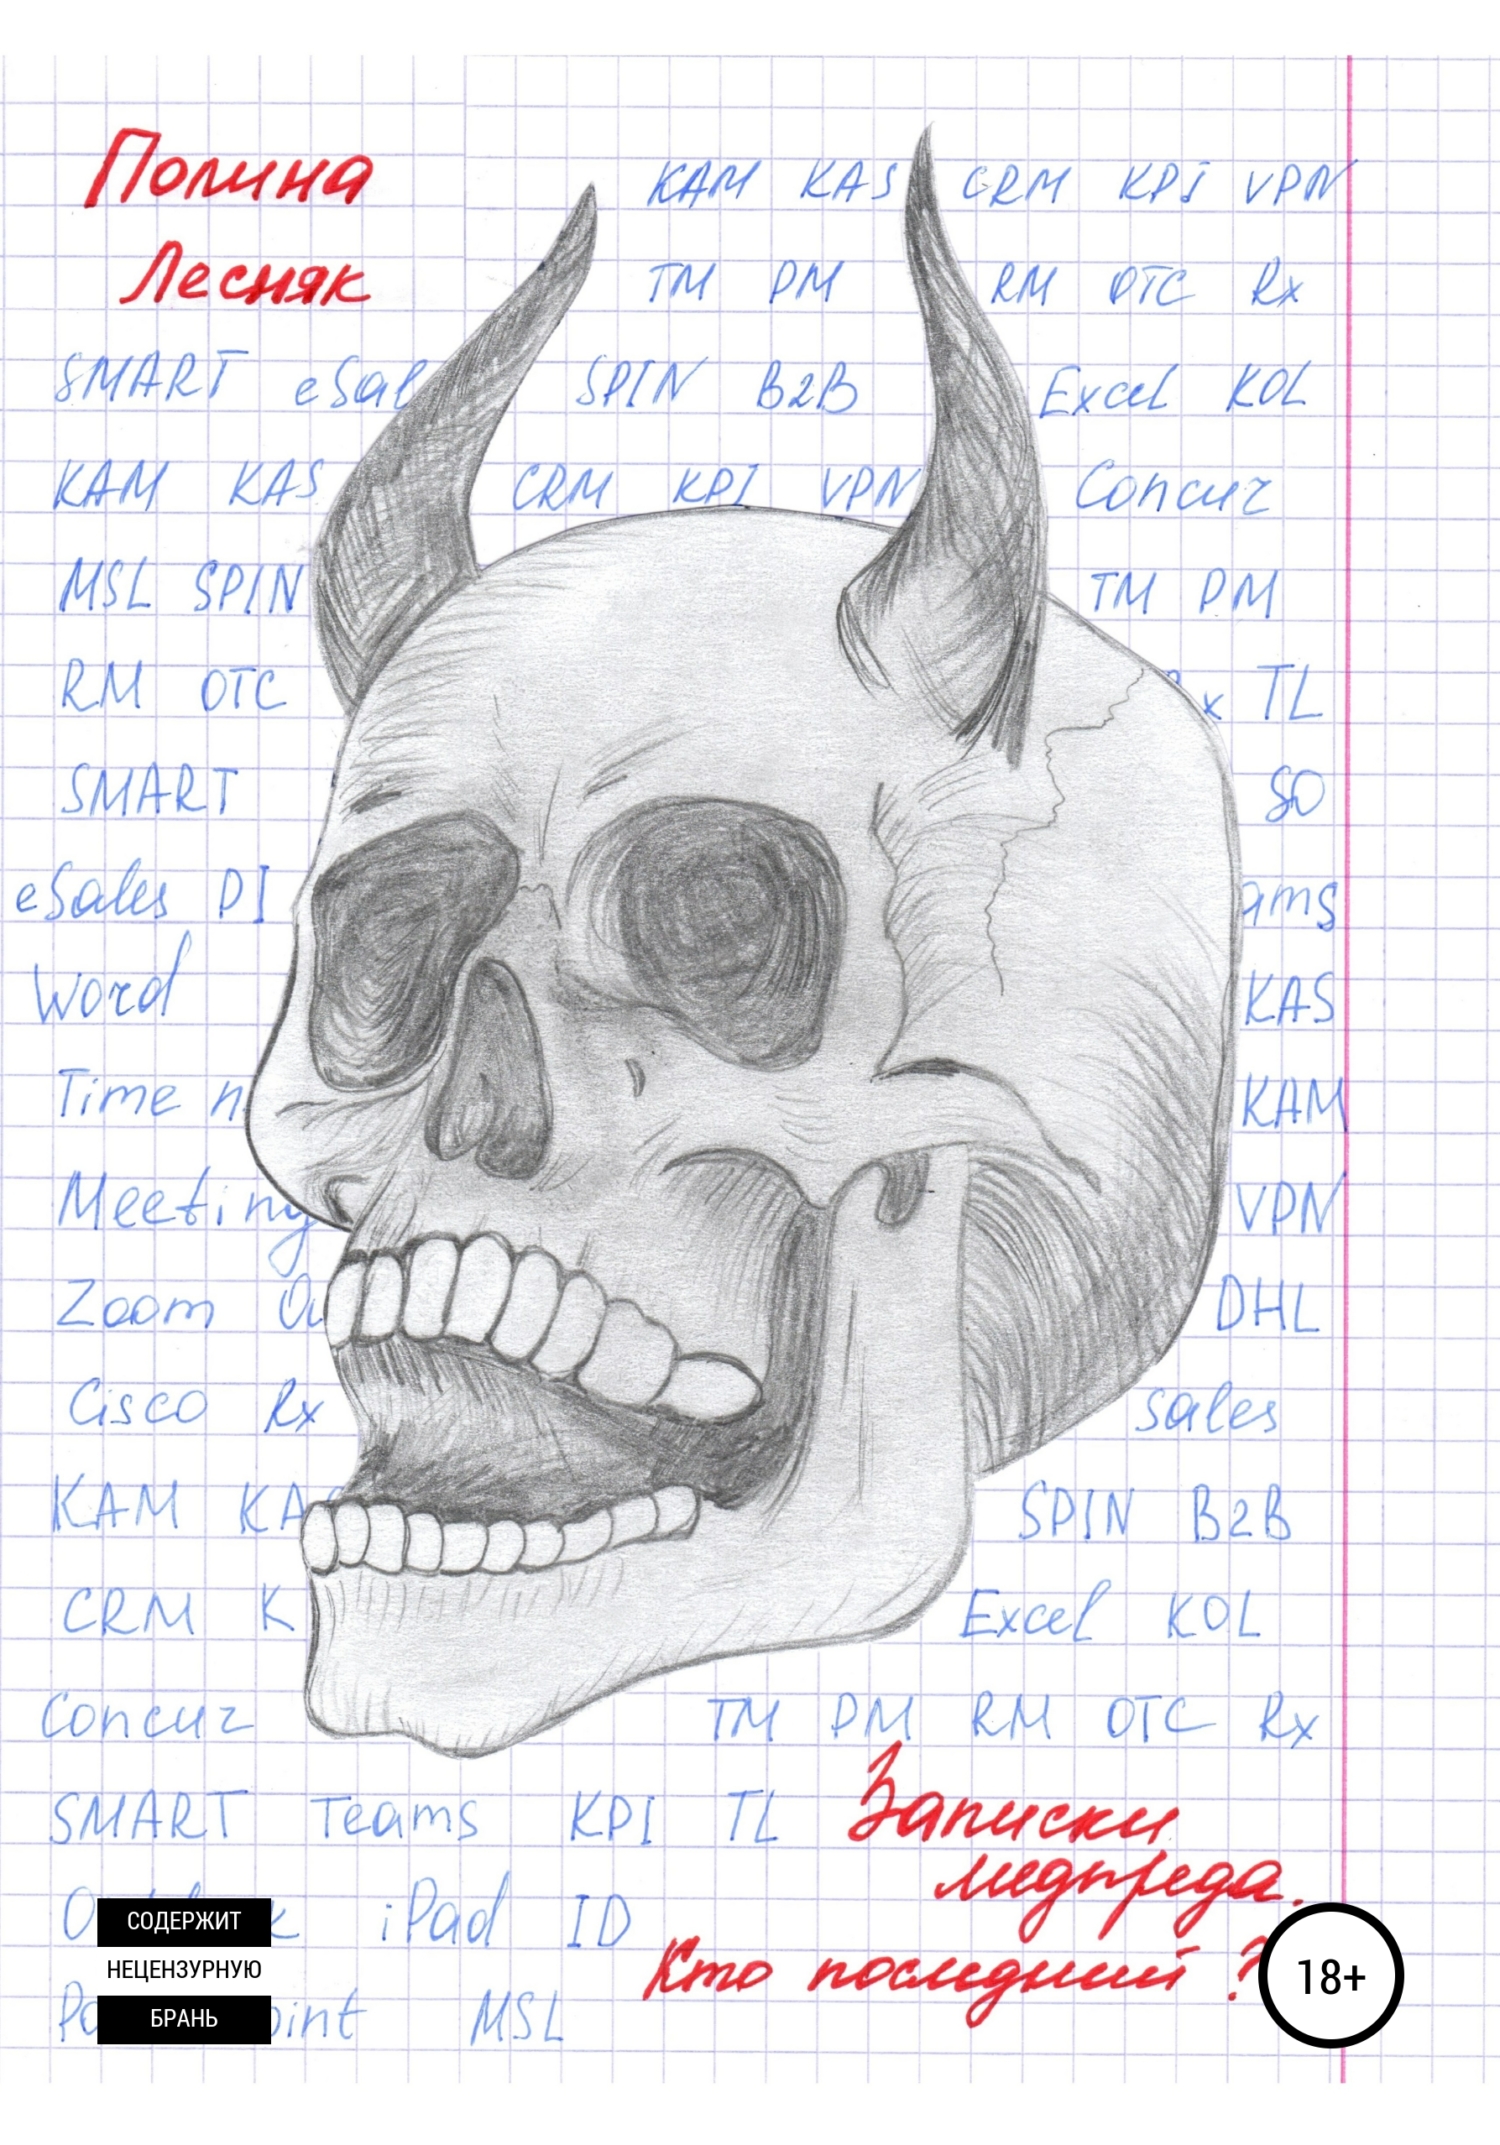 Полина
KAM KAS CRM KPI VPN
Лесняк
TM PM RM OTC Rx
SMART eSal SPIN B2B Excel KOL
KAM KAS CRM KPI VPN Concur
MSL SPIN TM PM
RM OTC x TL
SMART SO
eSales PI ams
Word KAS
Time KAM
Meeting VPN
Zoom DHL
Cisco Rx sales
KAM KAS SPIN B2B
CRM K Excel KOL
Concur TM PM RM OTC Rx
SMART Teams KPI TL
Записки
медпреда.
iPad ID
Кто последний?
int MSL
СОДЕРЖИТ
НЕЦЕНЗУРНУЮ
БРАНЬ
18+